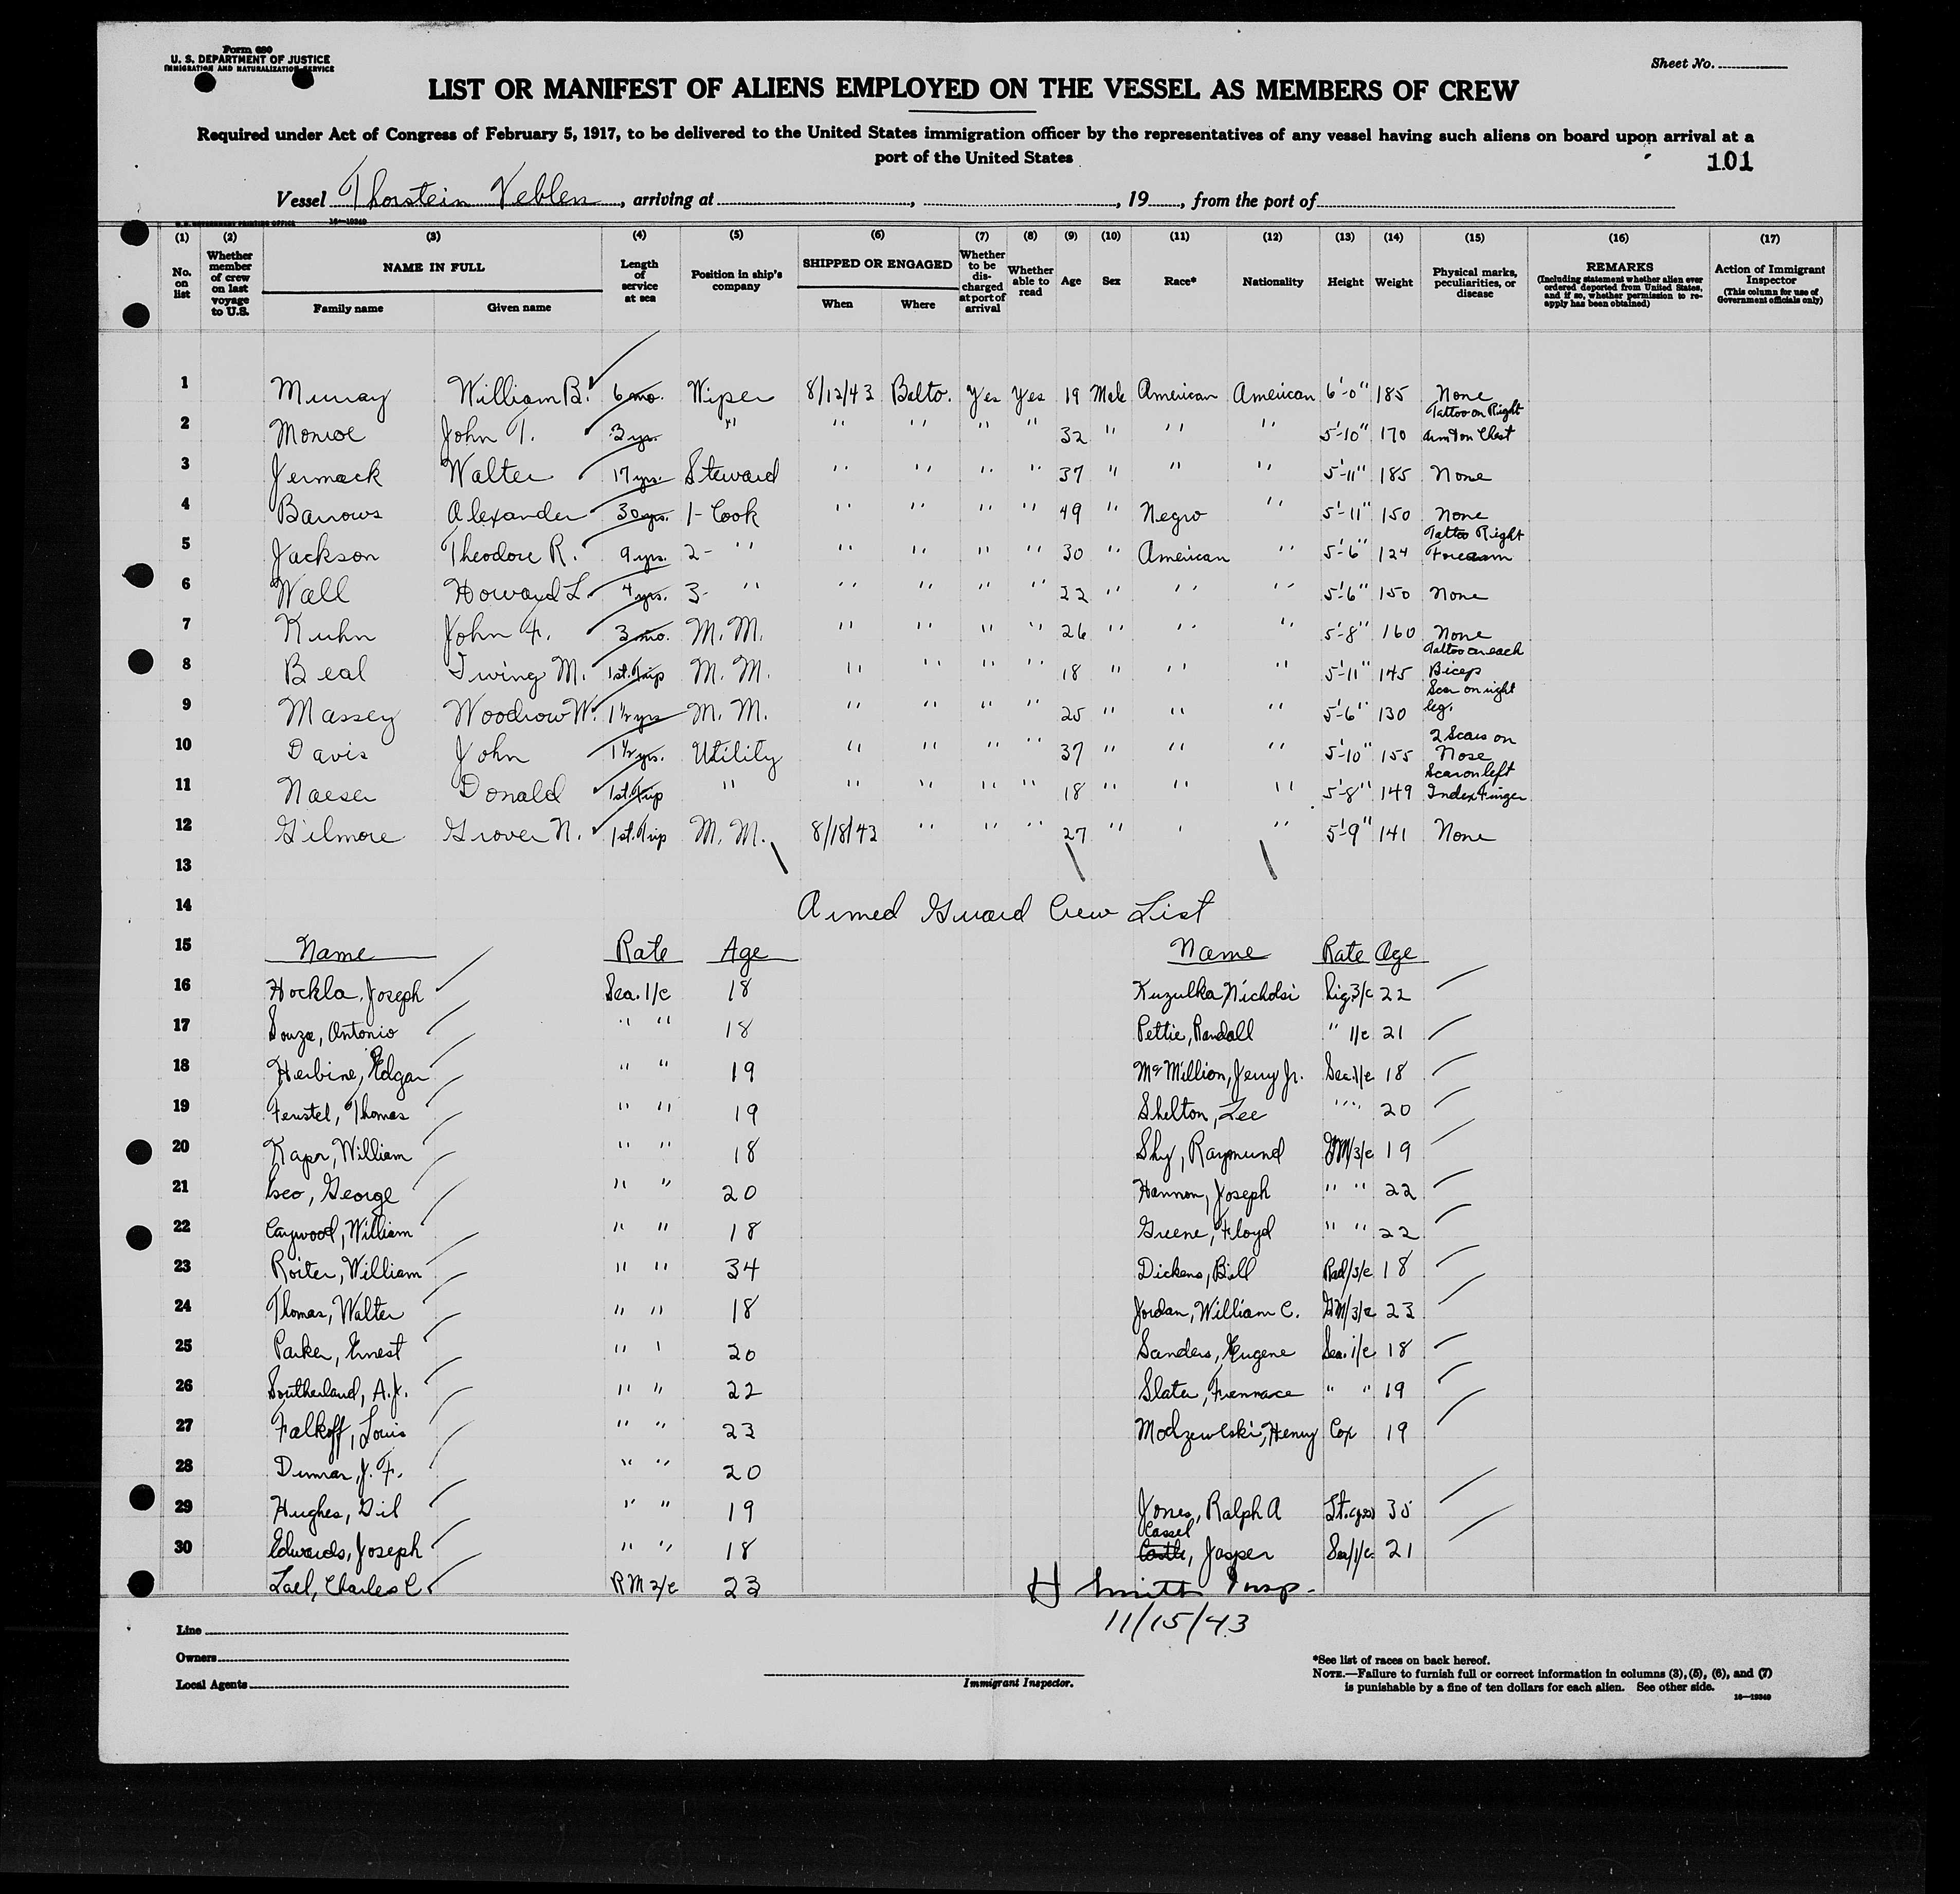 Form 680
U. S. DEPARTMENT OF JUSTICE
IMMIGRATION AND NATURALIZATION SERVICE
Sheet No.
LIST OR MANIFEST OF ALIENS EMPLOYED ON THE VESSEL AS MEMBERS OF CREW
Required under Act of Congress of February 5, 1917, to be delivered to the United States immigration officer by the representatives of any vessel having such aliens on board upon arrival at a
port of the United States
101
Vessel Thorstein Veblen, arriving at , , 19 , from the port of
U. S. GOVERNMENT PRINTING OFFICE 16—19340
(1) (2) (3) (4) (5) (6) (7) (8) (9) (10) (11) (12) (13) (14) (15) (16) (17)
No. on list
Whether member of crew on last voyage to U.S.
NAME IN FULL
Family name Given name
Length of service at sea
Position in ship's company
SHIPPED OR ENGAGED
When Where
Whether to be discharged at port of arrival
Whether able to read
Age
Sex
Race*
Nationality
Height
Weight
Physical marks, peculiarities, or disease
REMARKS
(Including statement whether alien ever ordered deported from United States, and if so, whether permission to re-apply has been obtained)
Action of Immigrant Inspector
(This column for use of Government officials only)
1 Murray William B. 6 mo. Wiper 8/12/43 Balto. Yes Yes 19 Male American American 6'-0" 185 None
2 Monroe John T. 3 yr. " " " " " 32 " " " 5'-10" 170 Tattoo on Right arm & on Chest
3 Jermack Walter 17 yrs. Steward " " " " 37 " " " 5'-11" 185 None
4 Barrows Alexander 30 yrs. 1- Cook " " " " 49 " Negro " 5'-11" 150 None
5 Jackson Theodore R. 9 yrs. 2- " " " " " 30 " American " 5'-6" 124 Tattoo Right Forearm
6 Wall Howard L. 4 yrs. 3- " " " " " 22 " " " 5'-6" 150 None
7 Kuhn John F. 3 mo. M. M. " " " " 26 " " " 5'-8" 160 None
8 Beal Irving M. 1st. Trip M. M. " " " " 18 " " " 5'-11" 145 Tattoo on each Bicep
9 Massey Woodrow W. 1½ yrs M. M. " " " " 25 " " " 5'-6" 130 Scar on right leg.
10 Davis John 1½ yrs. Utility " " " " 37 " " " 5'-10" 155 2 Scars on Nose
11 Naeser Donald 1st. Trip " " " " " 18 " " " 5'-8" 149 Scar on left Index Finger
12 Gilmore Grover N. 1st. Trip M. M. 8/18/43 " " " 27 " " " 5'-9" 141 None
13
14 Armed Guard Crew List
15 Name Rate Age Name Rate Age
16 Hockla, Joseph Sea. 1/c 18 Kuzulka Sig. 3/c 22
17 Souza, Antonio " " 18 Pettie, Randall " 1/c 21
18 Herbine, Edgar " " 19 McMillion, Jerry Jr. Sea. 1/c 18
19 Feustel, Thomas " " 19 Shelton, Lee " " 20
20 William " " 18 Shy, Raymund GM/3/c 19
21 George " " 20 Hannon, Joseph " " 22
22 Caywood, William " " 18 Greene, Floyd " " 22
23 Roiter, William " " 34 Dickens, Bill Rad/3/c 18
24 Thomas, Walter " " 18 Jordan, William C. GM/3/c 23
25 Parker, Ernest " " 20 Sanders, Eugene Sea. 1/c 18
26 Southerland, A. J. " " 22 Slater, " " 19
27 Falkoff, Louis " " 23 Modzewlski, Henry Cox 19
28 Dumar, J. F. " " 20
29 Hughes, Gil " " 19 Jones, Ralph A 35
30 Edwards, Joseph " " 18 Castle Cassel, Jasper Sea/1/c 21
Lael, Charles C. RM 2/c 23
H Smith Insp.
11/15/43
Line
Owners
Local Agents
Immigrant Inspector.
*See list of races on back hereof.
NOTE.—Failure to furnish full or correct information in columns (3), (5), (6), and (7)
is punishable by a fine of ten dollars for each alien. See other side.
16—19340